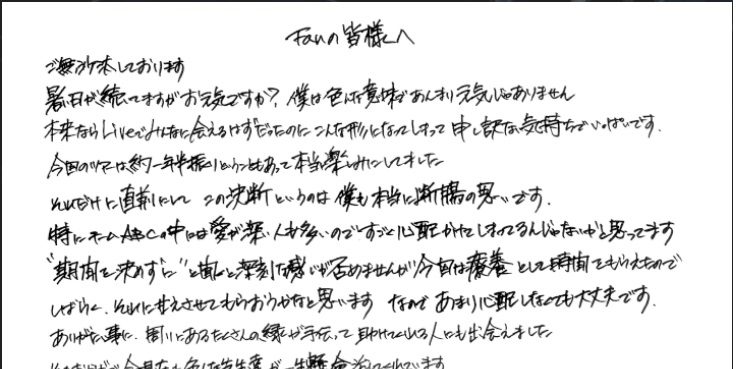 Fanの皆様へ
ご無沙汰しております
暑い日が続いてますがお元気ですか? 僕は色んな意味であんまり元気じゃありません
本来ならLiveでみんなに会えるはずだったのにこんな形になってしまって申し訳ない気持ちでいっぱいです.
今回のツアーは約一年半振りということもあって本当に楽しみにしてました
それだけに直前にして この決断というのは 僕も本当に断腸の思いです.
特にチームABCの中には愛が深い人も多いのですごく心配かけてしまってるんじゃないかと思ってます
"期間を決めずに"と聞くと深刻な感じが否めませんが今回は療養として時間をもらえたので
しばらく、それに甘えさせてもらおうかなと思います なので あまり心配しなくても大丈夫です.
ありがたい事に、周りにあるたくさんの縁が手伝って 助けてくれる人にも出会えました